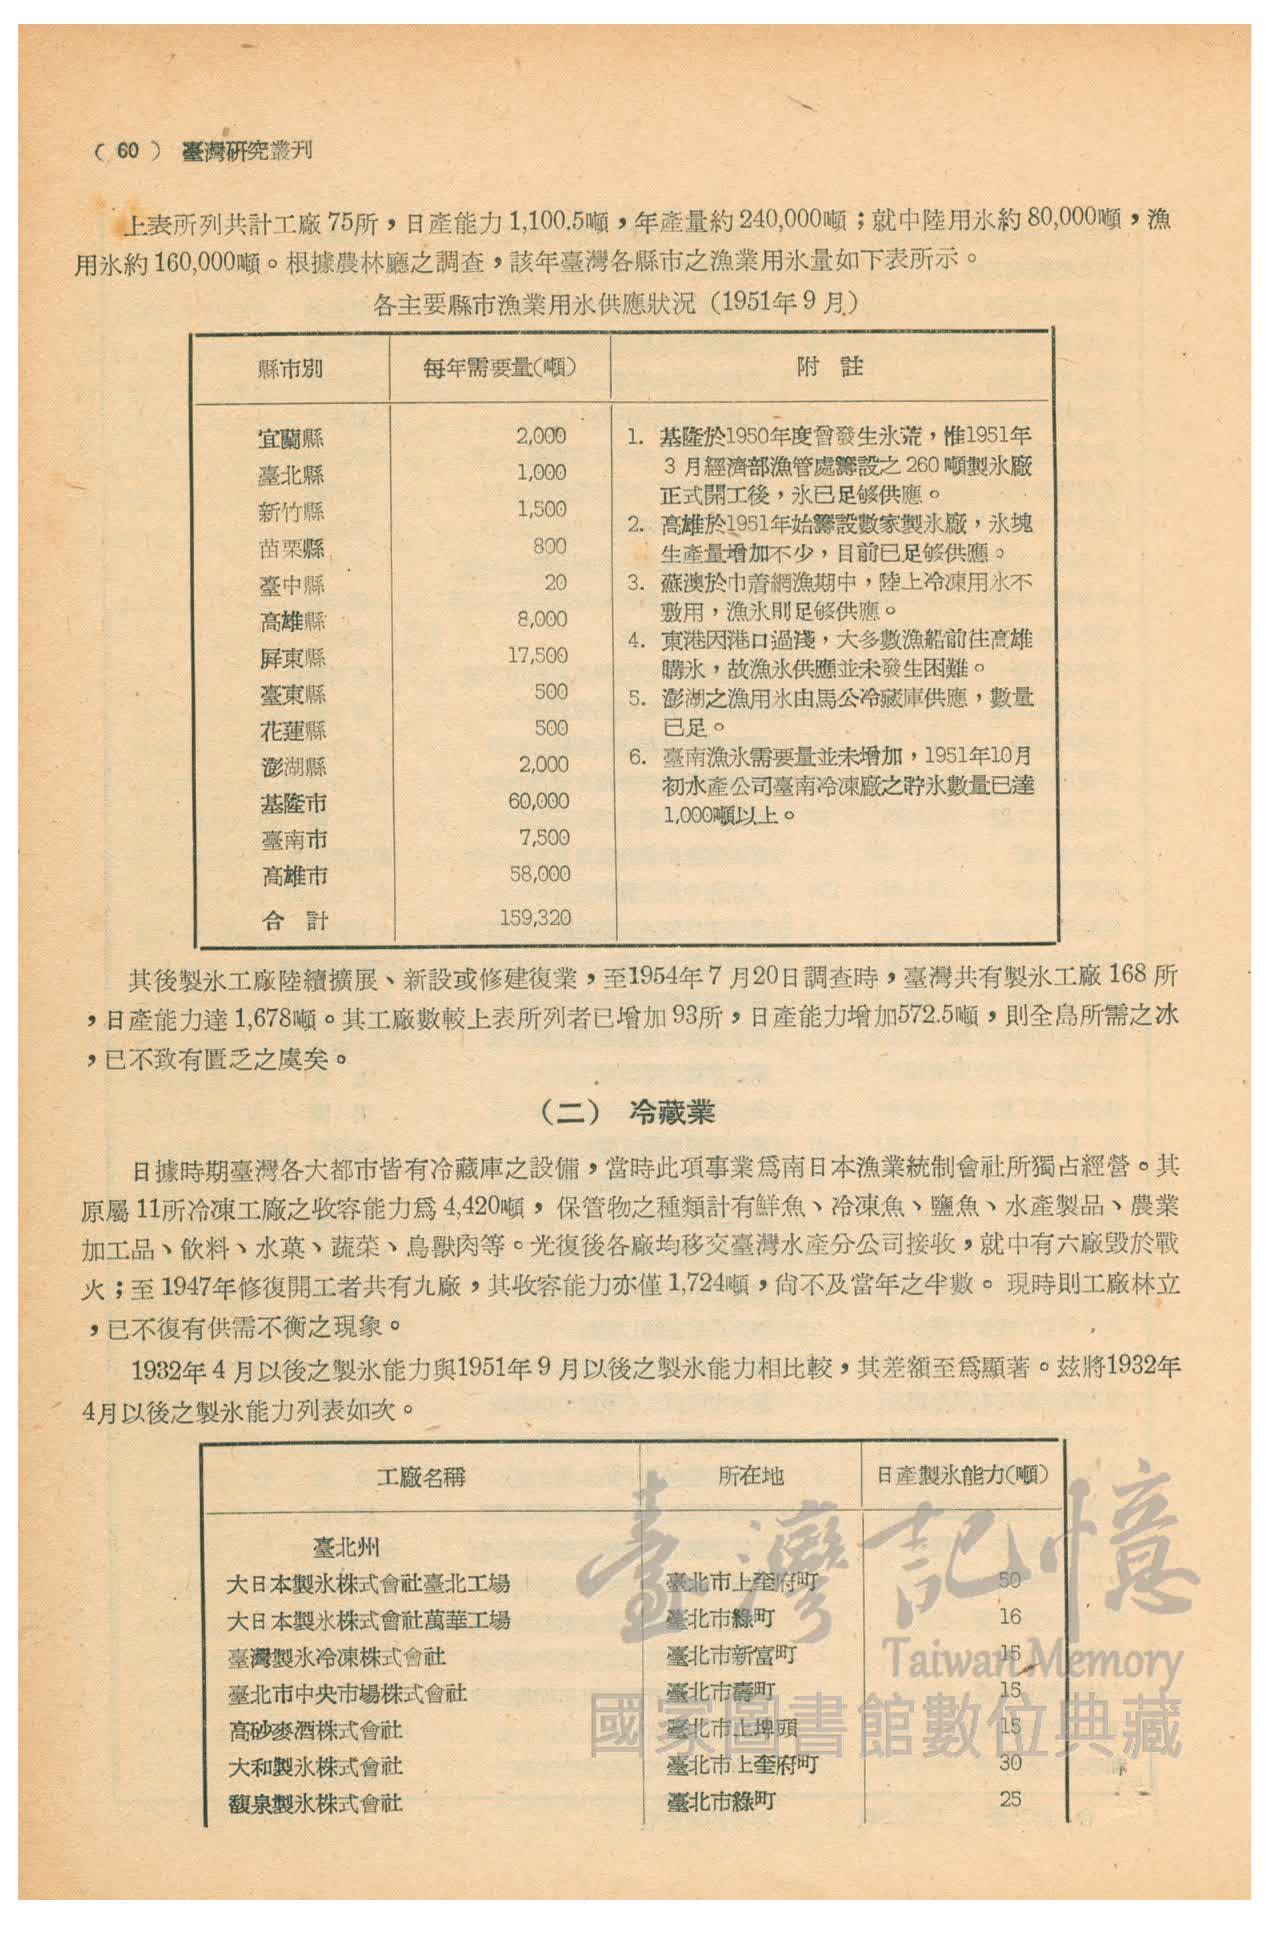 （60） 臺灣研究叢刊
上表所列共計工廠75所，日產能力1,100.5噸，年產量約240,000噸；就中陸用氷約80,000噸，漁
用氷約160,000噸。根據農林廳之調查，該年臺灣各縣市之漁業用氷量如下表所示。
各主要縣市漁業用氷供應狀況（1951年9月）
縣市別 每年需要量(噸) 附 註
宜蘭縣 2,000
臺北縣 1,000
新竹縣 1,500
苗栗縣 800
臺中縣 20
高雄縣 8,000
屏東縣 17,500
臺東縣 500
花蓮縣 500
澎湖縣 2,000
基隆市 60,000
臺南市 7,500
高雄市 58,000
合 計 159,320
1. 基隆於1950年度曾發生氷荒，惟1951年
3月經濟部漁管處籌設之260噸製氷廠
正式開工後，氷已足够供應。
2. 高雄於1951年始籌設數家製氷廠，氷塊
生產量增加不少，目前已足够供應。
3. 蘇澳於巾着網漁期中，陸上冷凍用氷不
敷用，漁氷則足够供應。
4. 東港因港口過淺，大多數漁船前往高雄
購氷，故漁氷供應並未發生困難。
5. 澎湖之漁用氷由馬公冷藏庫供應，數量
已足。
6. 臺南漁氷需要量並未增加，1951年10月
初水產公司臺南冷凍廠之貯氷數量已達
1,000噸以上。
其後製氷工廠陸續擴展、新設或修建復業，至1954年7月20日調查時，臺灣共有製氷工廠168所
，日產能力達1,678噸。其工廠數較上表所列者已增加93所，日產能力增加572.5噸，則全島所需之冰
，已不致有匱乏之虞矣。
（二） 冷藏業
日據時期臺灣各大都市皆有冷藏庫之設備，當時此項事業爲南日本漁業統制會社所獨占經營。其
原屬11所冷凍工廠之收容能力爲4,420噸，保管物之種類計有鮮魚、冷凍魚、鹽魚、水產製品、農業
加工品、飲料、水菓、蔬菜、鳥獸肉等。光復後各廠均移交臺灣水產分公司接收，就中有六廠毀於戰
火；至1947年修復開工者共有九廠，其收容能力亦僅1,724噸，尙不及當年之半數。現時則工廠林立
，已不復有供需不衡之現象。
1932年4月以後之製氷能力與1951年9月以後之製氷能力相比較，其差額至爲顯著。茲將1932年
4月以後之製氷能力列表如次。
工廠名稱 所在地 日產製氷能力(噸)
臺北州
大日本製氷株式會社臺北工場 臺北市上奎府町 50
大日本製氷株式會社萬華工場 臺北市綠町 16
臺灣製氷冷凍株式會社 臺北市新富町 15
臺北市中央市場株式會社 臺北市壽町 15
高砂麥酒株式會社 臺北市上埤頭 15
大和製氷株式會社 臺北市上奎府町 30
馥泉製氷株式會社 臺北市綠町 25
臺灣記憶
Taiwan Memory
國家圖書館數位典藏